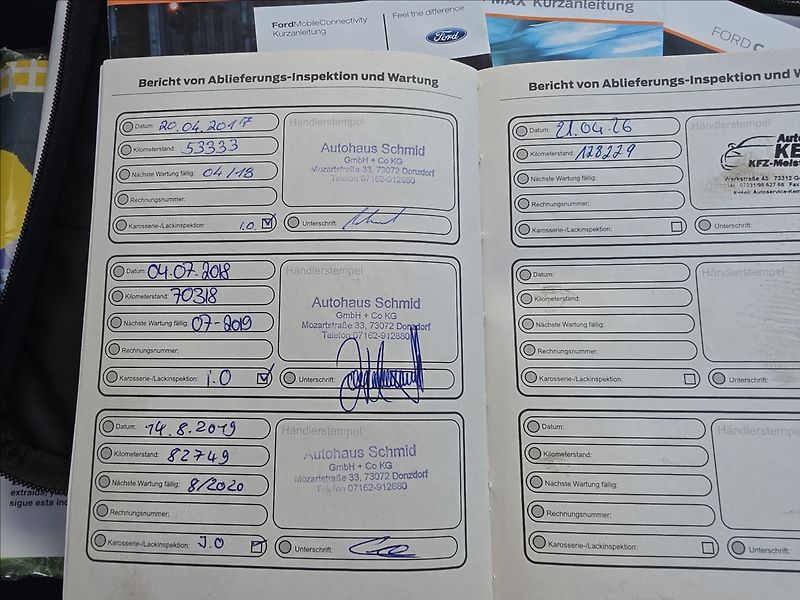 FordMobileConnectivity
Kurzanleitung
Feel the difference
Ford
MAX Kurzanleitung
FORD
extraída,
sigue esta
Bericht von Ablieferungs-Inspektion und Wartung
Datum: 20.04.2017
Händlerstempel
Kilometerstand: 53333
Autohaus Schmid
GmbH + Co KG
Mozartstraße 33, 73072 Donzdorf
Telefon 07162-912880
Nächste Wartung fällig: 04/18
Rechnungsnummer:
Karosserie-/Lackinspektion: i.O
Unterschrift:
Datum: 04.07.2018
Händlerstempel
Kilometerstand: 70318
Autohaus Schmid
GmbH + Co KG
Mozartstraße 33, 73072 Donzdorf
Telefon 07162-912880
Nächste Wartung fällig: 07-2019
Rechnungsnummer:
Karosserie-/Lackinspektion: i.O
Unterschrift:
Datum: 14.8.2019
Händlerstempel
Kilometerstand: 82749
Autohaus Schmid
GmbH + Co KG
Mozartstraße 33, 73072 Donzdorf
Telefon 07162-912880
Nächste Wartung fällig: 8/2020
Rechnungsnummer:
Karosserie-/Lackinspektion: J.O
Unterschrift:
Bericht von Ablieferungs-Inspektion und W
Datum: 21.04.26
Händlerstempel
Kilometerstand: 128229
Auto
KE
KFZ-Meis
Werkstraße 43 73312 G
Tel. 07331/98 627 68 Fax
e-Mail: Autoservice-Kem
Nächste Wartung fällig:
Rechnungsnummer:
Karosserie-/Lackinspektion:
Unterschrift:
Datum:
Händlerstempel
Kilometerstand:
Nächste Wartung fällig:
Rechnungsnummer:
Karosserie-/Lackinspektion:
Unterschrift:
Datum:
Händlerstempel
Kilometerstand:
Nächste Wartung fällig:
Rechnungsnummer:
Karosserie-/Lackinspektion:
Unterschrift: